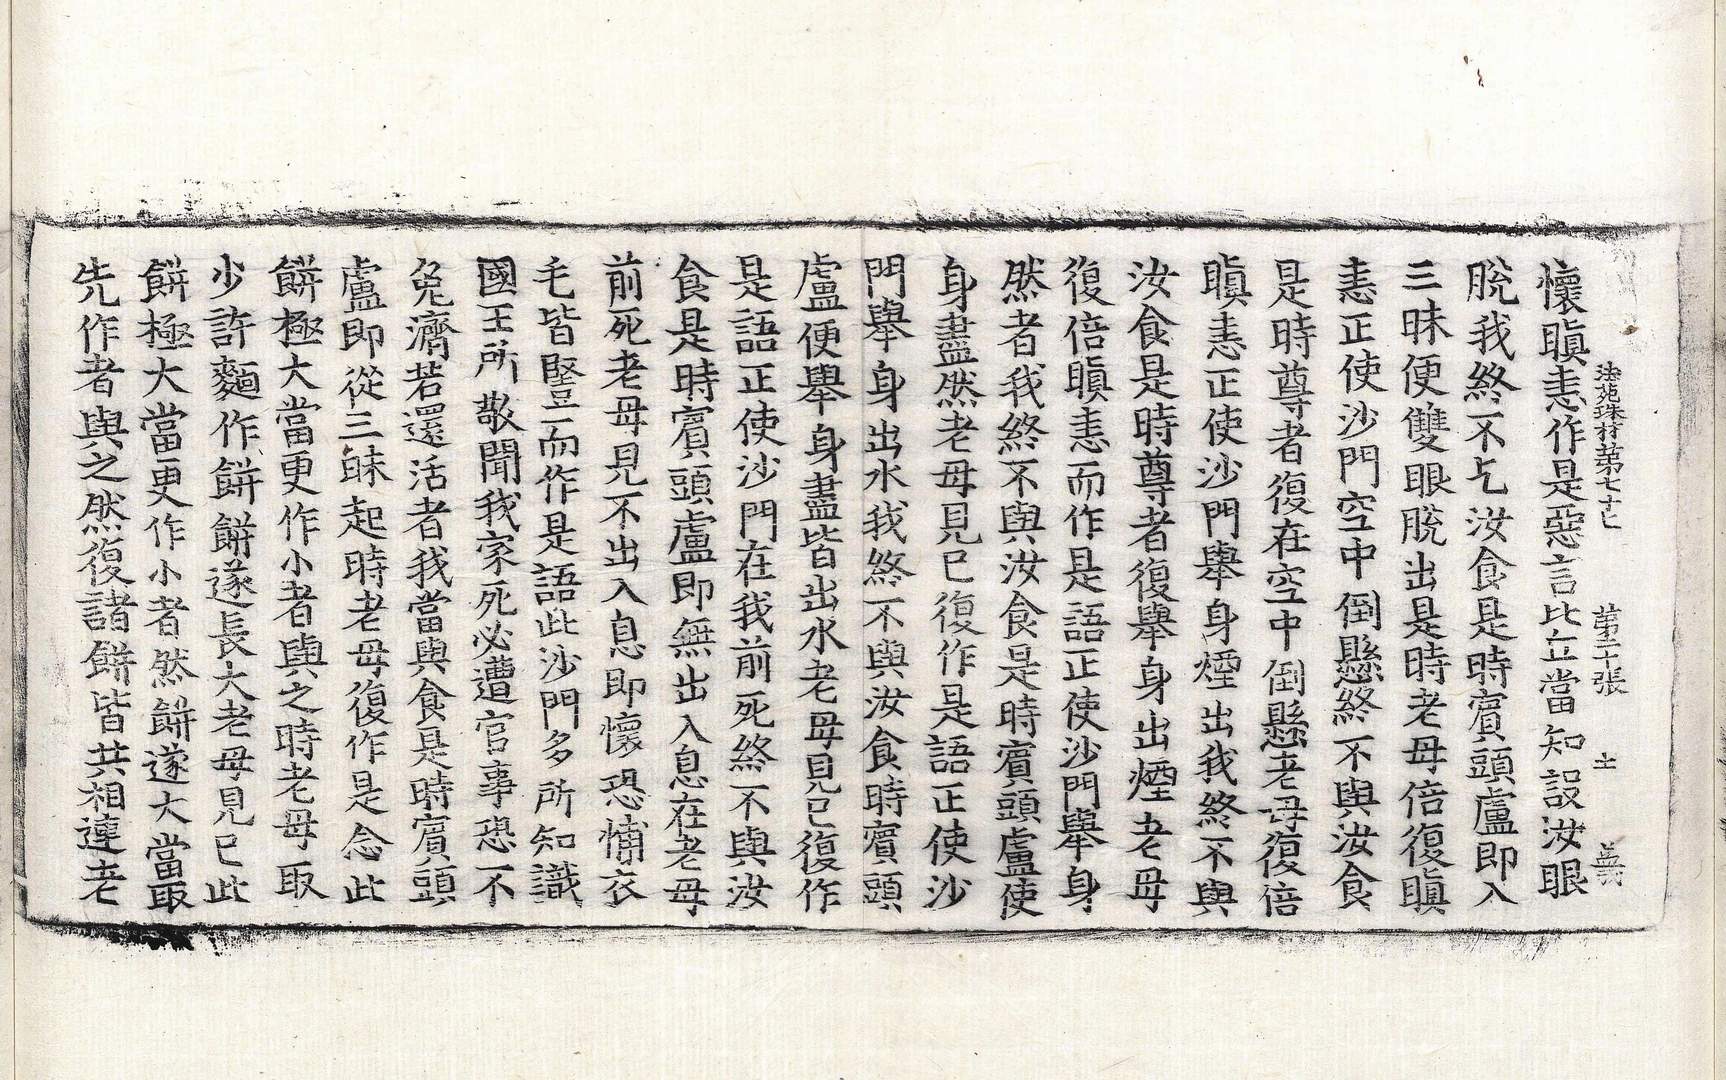 法苑珠林第七十七　第二十張　土　義
懷瞋恚作是惡言比丘當知設汝眼
脫我終不乞汝食是時賓頭盧即入
三昧便雙眼脫出是時老母倍復瞋
恚正使沙門空中倒懸終不與汝食
是時尊者復在空中倒懸老母復倍
瞋恚正使沙門舉身煙出我終不與
汝食是時尊者復舉身出煙老母
復倍瞋恚而作是語正使沙門舉身
然者我終不與汝食是時賓頭盧使
身盡然老母見已復作是語正使沙
門舉身出水我終不與汝食時賓頭
盧便舉身盡皆出水老母見已復作
是語正使沙門在我前死終不與汝
食是時賓頭盧即無出入息在老母
前死老母見不出入息即懷恐悑衣
毛皆竪而作是語此沙門多所知識
國王所敬聞我家死必遭官事恐不
免濟若還活者我當與食是時賓頭
盧即從三昧起時老母復作是念此
餅極大當更作小者與之時老母取
少許麵作餅餅遂長大老母見已此
餅極大當更作小者然餅遂大當取
先作者與之然復諸餅皆共相連老